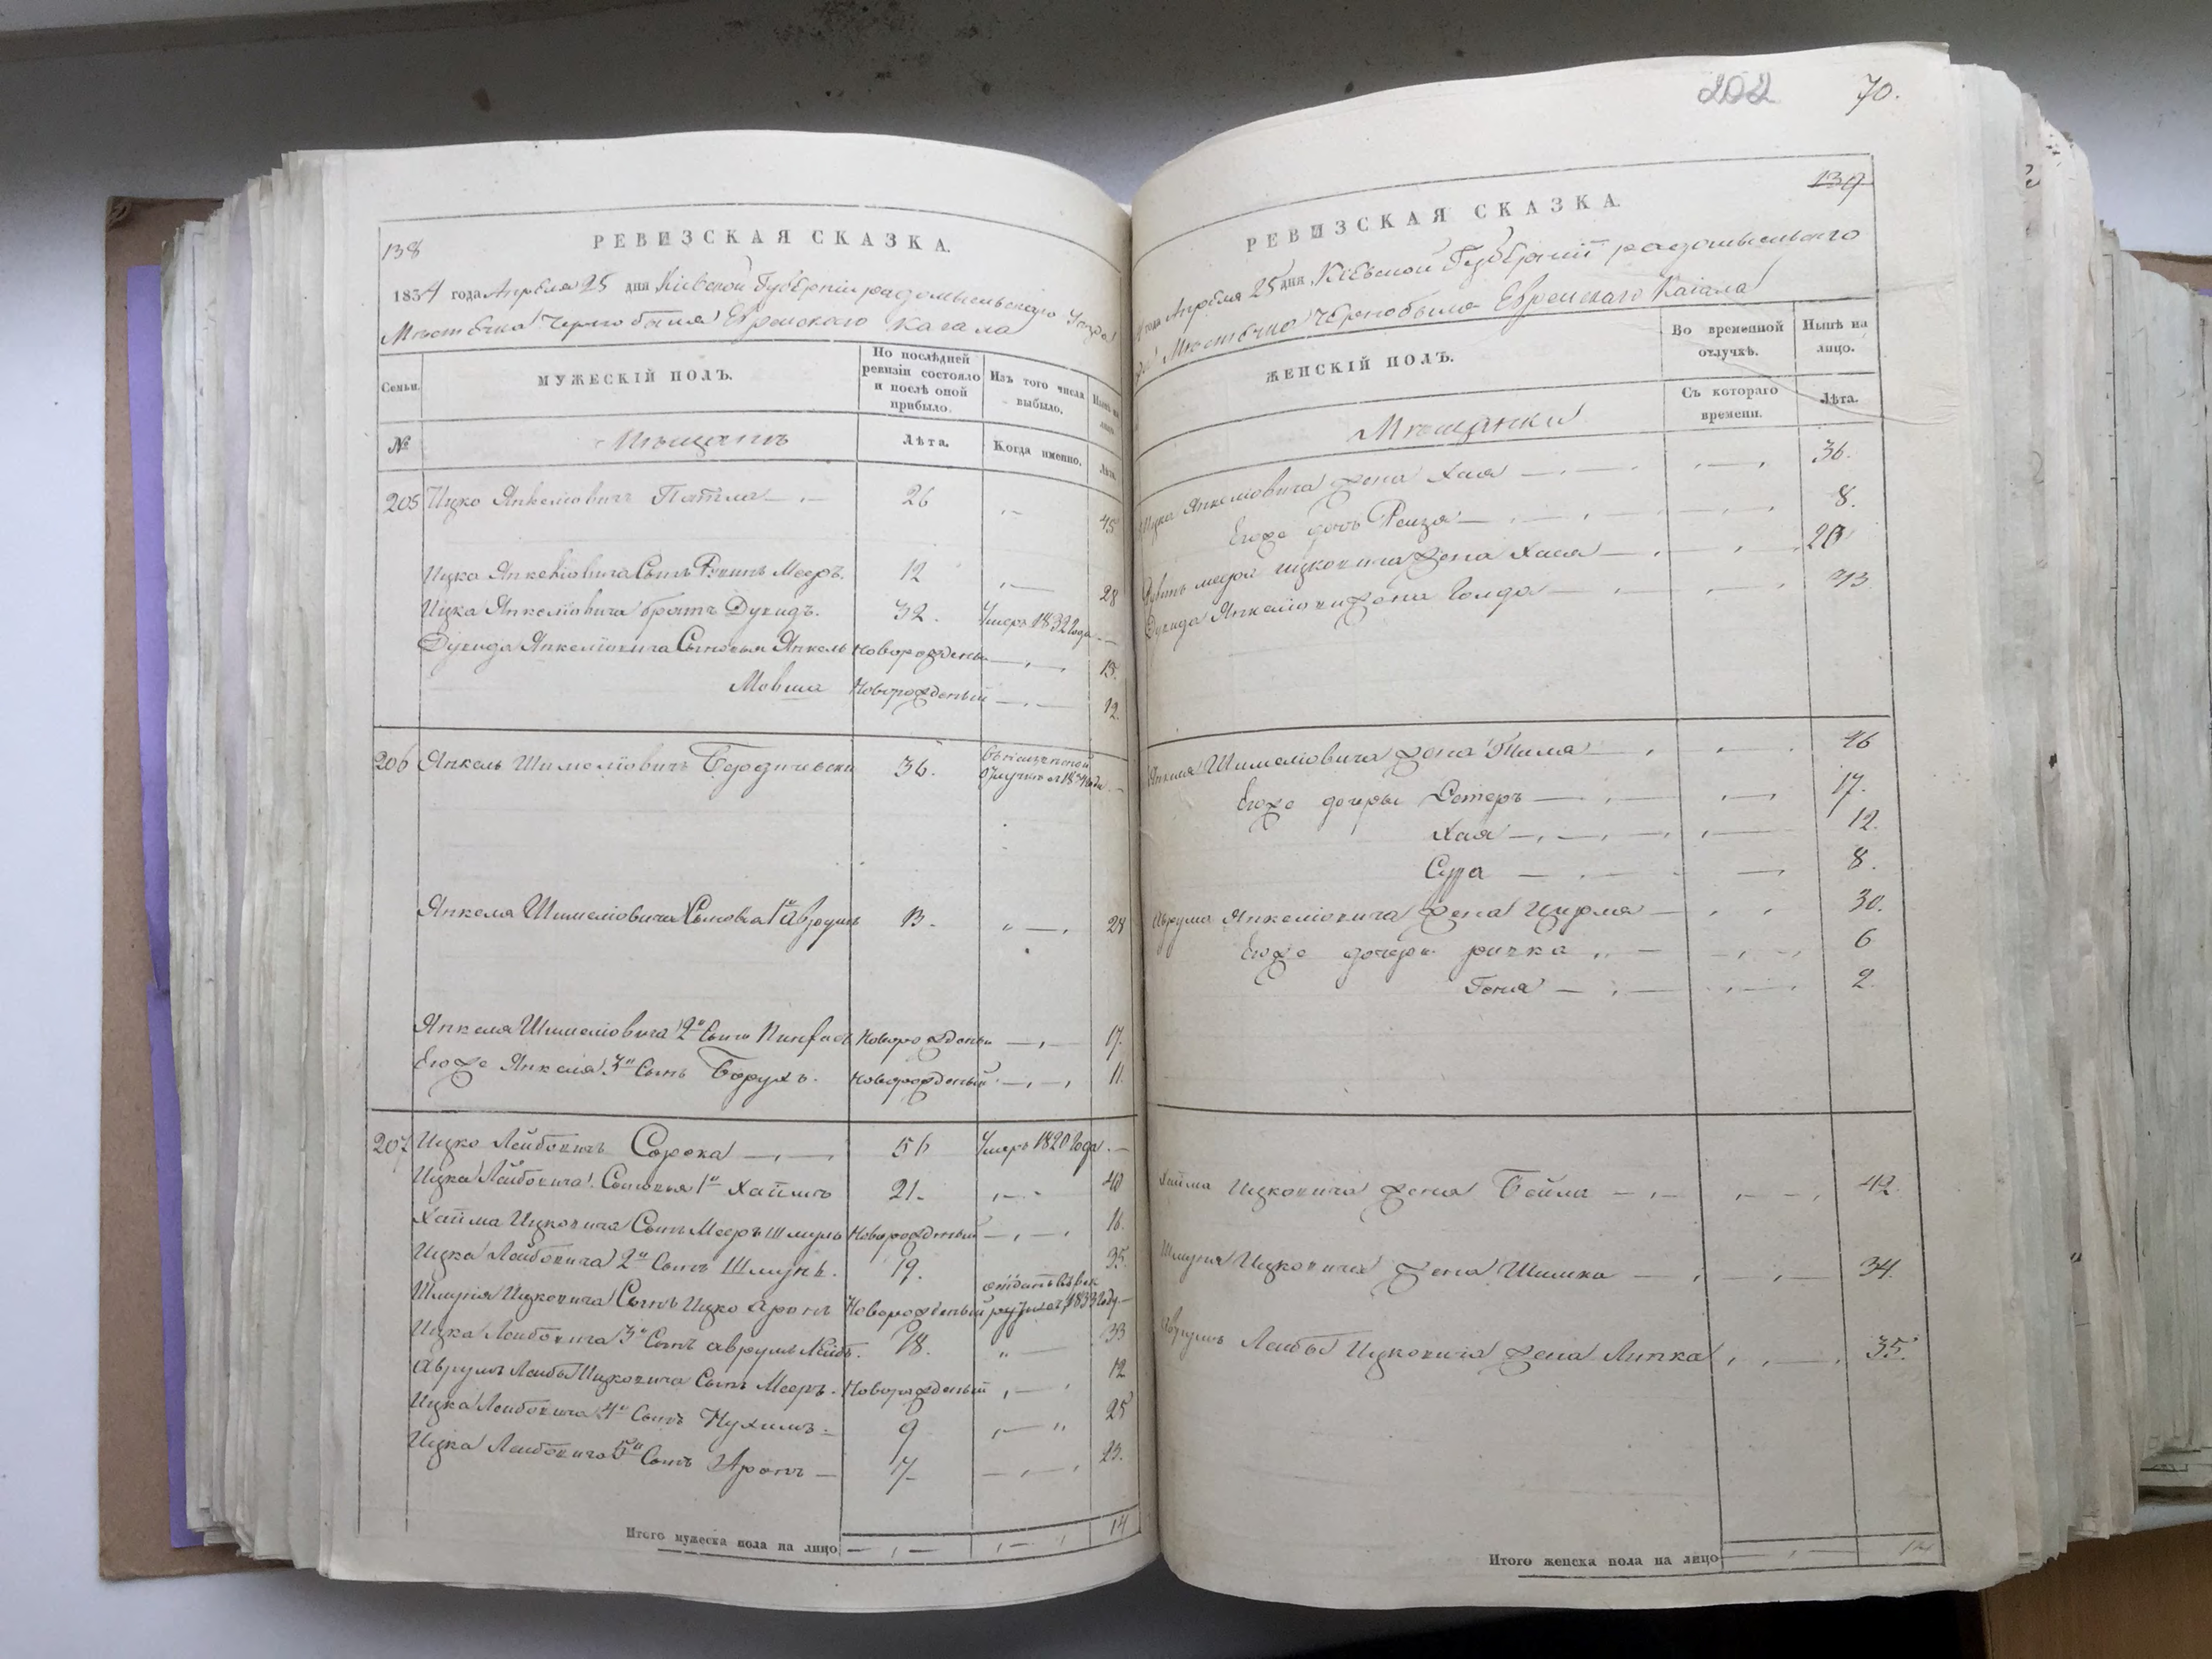 138
РЕВИЗСКАЯ СКАЗКА.
1834 года Апреля 25 дня Кіевской Губерніи радомысльскаго Уезда
Местечка Чернобыля Еврейскаго Кагала
Семьи.
МУЖЕСКІЙ ПОЛЪ.
По послѣдней ревизіи состояло и послѣ оной прибыло.
Изъ того числа выбыло,
Нынѣ на лицо.
№
Мещанъ
Лѣта.
Когда именно,
Лѣта.
205 Ицко Янкеліовичъ 26 45
Ицка Янкеліовича Сынъ Рувинъ Мееръ. 12 28
Ицка Янкеліовича братъ Дувидъ. 32. Умеръ 1832 Года —
Дувида Янкеліовича Сыновья Янкель Новорожденый 13.
Мовша Новорожденый 12.
206 Янкель Шмеліовичъ Бердичевски 36. —
Янкеля Шмеліовича Сыновья 1й Аврумъ 13. 28
Янкеля Шмеліовича 2й Сынъ Пинхасъ Новорожденый 17.
Егоже Янкеля 3й Сынъ Борухъ. Новорожденый 11.
207 Ицко Лейбовичъ Сорока 56 Умеръ 1820 Года. —
Ицка Лейбовича Сыновья 1й Хаимъ 21. 40
Хаима Ицковича Сынъ Мееръ Шмуль Новорожденый 16.
Ицка Лейбовича 2й Сынъ Шмуль. 19. 35.
Шмуля Ицковича Сынъ Ицко Аронъ Новорожденый отданъ въ рекруты 1833 Году —
Ицка Лейбовича 3й Сынъ аврумъ Лейбъ. 18. 33
Аврумъ Лейбы Ицковича Сынъ Мееръ. Новорожденый 12
Ицка Лейбовича 4й Сынъ Нухимъ 9 25
Ицка Лейбовича 5й Сынъ Аронъ — 7 23.
Итого мужеска пола на лицо 14
202 70.
139
РЕВИЗСКАЯ СКАЗКА.
года Апреля 25 дня Кіевской Губерніи радомысльскаго
Местечка Чернобыля Еврейскаго Кагала
ЖЕНСКІЙ ПОЛЪ.
Во временной отлучкѣ.
Нынѣ на лицо.
Мещанки
Съ котораго времени.
Лѣта.
Ицка Янкеліовича жена Хая 36.
Егоже дочь Рейза 8.
Рувинъ меера Ицковича жена Хая 20
Дувида Янкеліовича жена Голда 43
Янкеля Шмеліовича жена 46
Егоже дочери Естеръ 17.
Хая 12.
Сура 8.
Аврума Янкеліовича жена Цирля 30.
Егоже дочери ривка 6
Геня 2.
Хаима Ицковича жена Бейла 42.
Шмуля Ицковича жена Шимка 34.
Аврумъ Лейбы Ицковича жена Липка 35.
Итого женска пола на лицо 14